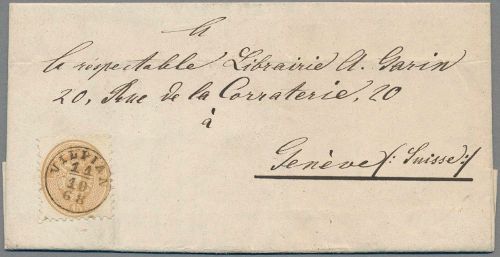 A
la respectable Librairie A. Garin
20, Rue de la Corraterie, 20
à
Genève (: Suisse :)
VILPIAN
11
10
68